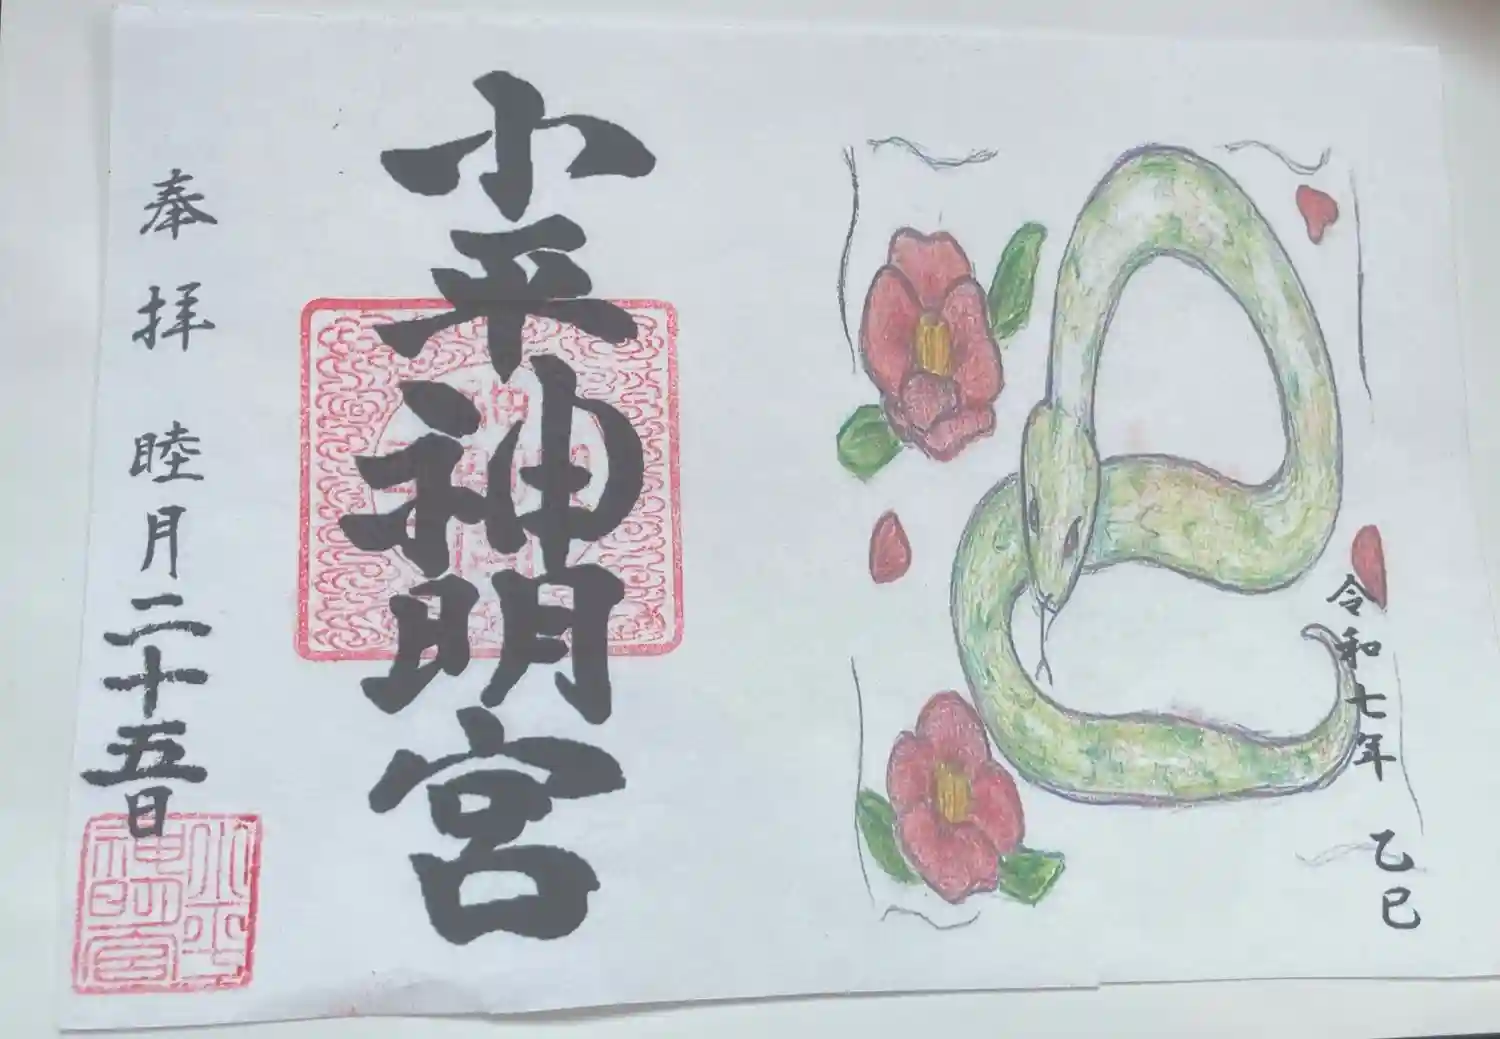 令和七年
乙巳
小平神明宮
奉拝
睦月二十五日
小平
神明宮